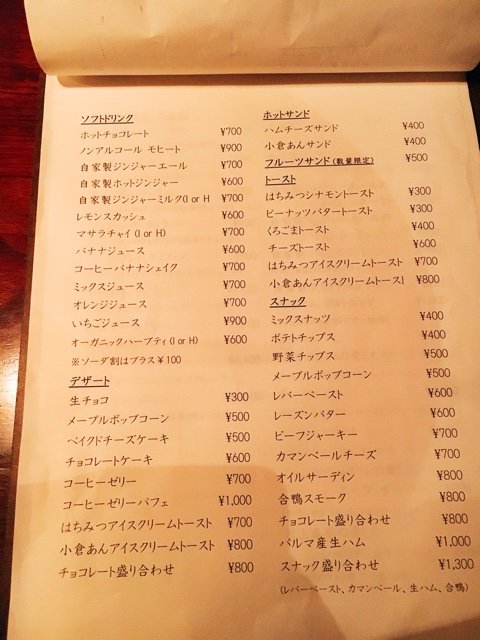 ソフトドリンク
ホットチョコレート ¥700
ノンアルコール モヒート ¥900
自家製ジンジャーエール ¥700
自家製ホットジンジャー ¥600
自家製ジンジャーミルク(I or H ¥700
レモンスカッシュ ¥600
マサラチャイ(I or H) ¥700
バナナジュース ¥600
コーヒーバナナシェイク ¥700
ミックスジュース ¥700
オレンジジュース ¥700
いちごジュース ¥900
オーガニックハーブティ(I or H) ¥600
※ソーダ割はプラス¥100
デザート
生チョコ ¥300
メープルポップコーン ¥500
ベイクドチーズケーキ ¥500
チョコレートケーキ ¥600
コーヒーゼリー ¥700
コーヒーゼリーパフェ ¥1,000
はちみつアイスクリームトースト ¥700
小倉あんアイスクリームトースト ¥800
チョコレート盛り合わせ ¥800
ホットサンド
ハムチーズサンド ¥400
小倉あんサンド ¥400
フルーツサンド(数量限定) ¥500
トースト
はちみつシナモントースト ¥300
ピーナッツバタートースト ¥300
くろごまトースト ¥400
チーズトースト ¥600
はちみつアイスクリームトースト ¥700
小倉あんアイスクリームトースト ¥800
スナック
ミックスナッツ ¥400
ポテトチップス ¥400
野菜チップス ¥500
メープルポップコーン ¥500
レバーペースト ¥600
レーズンバター ¥600
ビーフジャーキー ¥700
カマンベールチーズ ¥700
オイルサーディン ¥800
合鴨スモーク ¥800
チョコレート盛り合わせ ¥800
パルマ産生ハム ¥1,000
スナック盛り合わせ ¥1,300
(レバーペースト、カマンベール、生ハム、合鴨)